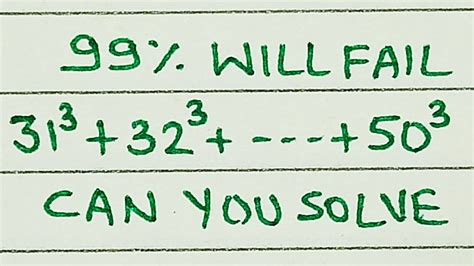 99% WILL FAIL
31³+32³+----+50³
CAN YOU SOLVE